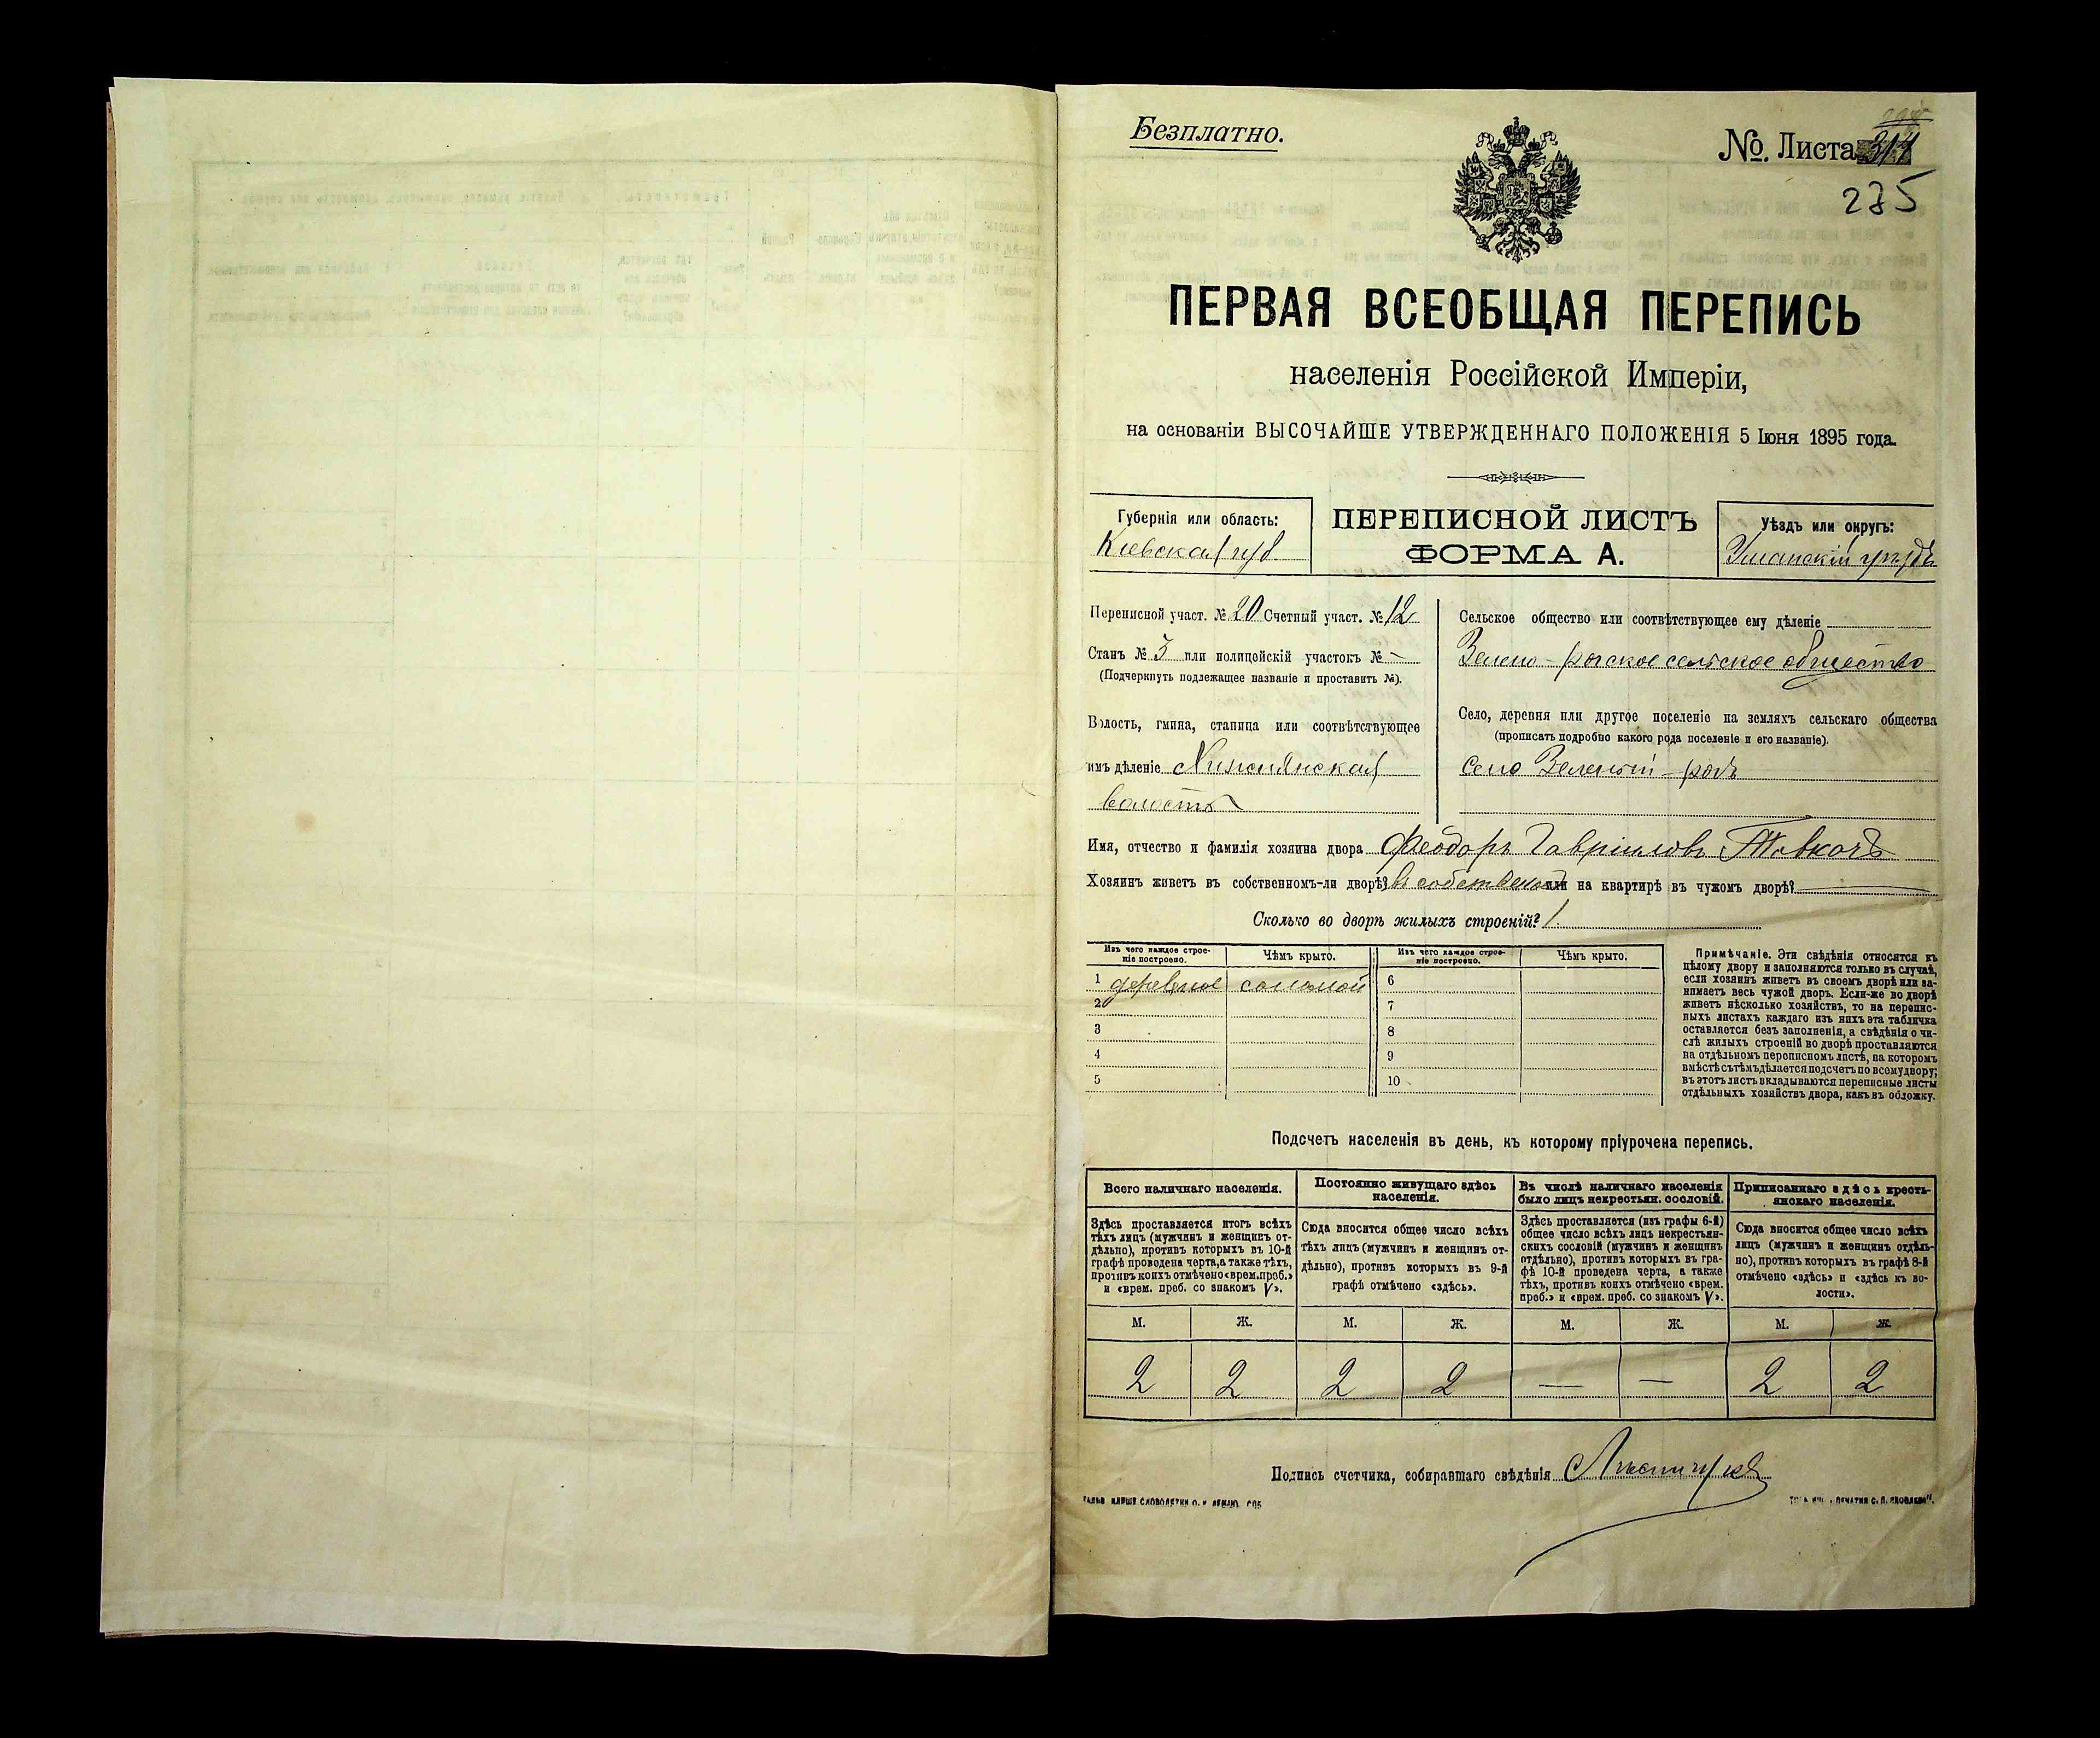 Безплатно.
№. Листа 314
275
ПЕРВАЯ ВСЕОБЩАЯ ПЕРЕПИСЬ
населенія Россійской Имперіи,
на основаніи ВЫСОЧАЙШЕ УТВЕРЖДЕННАГО ПОЛОЖЕНІЯ 5 Іюня 1895 года.
Губернія или область:
Кіевская губ.
ПЕРЕПИСНОЙ ЛИСТЪ
ФОРМА А.
Уѣздъ или округъ:
Уманскій уѣздъ
Переписной участ. № 20 Счетный участ. № 12
Станъ № 3 или полицейскій участокъ № –
(Подчеркнуть подлежащее названіе и проставить №).
Волость, гмина, станица или соотвѣтствующее
имъ дѣленіе
волость
Сельское общество или соотвѣтствующее ему дѣленіе
Зелено-рогское сельское общество
Село, деревня или другое поселеніе на земляхъ сельскаго общества
(прописать подробно какого рода поселеніе и его названіе).
село Зеленый-рогъ
Имя, отчество и фамилія хозяина двора Феодоръ Гавріиловъ Товкачъ
Хозяинъ живетъ въ собственномъ-ли дворѣ? въ собственомъ или на квартирѣ въ чужомъ дворѣ? —
Сколько во дворѣ жилыхъ строеній? 1.
Изъ чего каждое строе-
ніе построено.
Чѣмъ крыто.
Изъ чего каждое строе-
ніе построено.
Чѣмъ крыто.
1 деревяное соломой 6
2 7
3 8
4 9
5 10
Примѣчаніе. Эти свѣдѣнія относятся къ
цѣлому двору и заполняются только въ случаѣ,
если хозяинъ живетъ въ своемъ дворѣ или за-
нимаетъ весь чужой дворъ. Если-же во дворѣ
живетъ нѣсколько хозяйствъ, то на перепис-
ныхъ листахъ каждаго изъ нихъ эта табличка
оставляется безъ заполненія, а свѣдѣнія о чи-
слѣ жилыхъ строеній во дворѣ проставляются
на отдѣльномъ переписномъ листѣ, на которомъ
вмѣстѣ съ тѣмъ дѣлается подсчетъ по всему двору;
въ этотъ листъ вкладываются переписные листы
отдѣльныхъ хозяйствъ двора, какъ въ обложку.
Подсчетъ населенія въ день, къ которому пріурочена перепись.
Всего наличнаго населенія.
Здѣсь проставляется итогъ всѣхъ
тѣхъ лицъ (мужчинъ и женщинъ от-
дѣльно), противъ которыхъ въ 10-й
графѣ проведена черта, а также тѣхъ,
противъ коихъ отмѣчено «врем. преб.»
и «врем. преб. со знакомъ V».
Постоянно живущаго здѣсь
населенія.
Сюда вносится общее число всѣхъ
тѣхъ лицъ (мужчинъ и женщинъ от-
дѣльно), противъ которыхъ въ 9-й
графѣ отмѣчено «здѣсь».
Въ числѣ наличнаго населенія
было лицъ некрестьян. сословій.
Здѣсь проставляется (изъ графы 6-й)
общее число всѣхъ лицъ некрестьян-
скихъ сословій (мужчинъ и женщинъ
отдѣльно), противъ которыхъ въ гра-
фѣ 10-й проведена черта, а также
тѣхъ, противъ коихъ отмѣчено «врем.
преб.» и «врем. преб. со знакомъ V».
Приписаннаго здѣсь кресть-
янскаго населенія.
Сюда вносится общее число всѣхъ
лицъ (мужчинъ и женщинъ отдѣль-
но), противъ которыхъ въ графѣ 8-й
отмѣчено «здѣсь» и «здѣсь къ во-
лости».
М. Ж. М. Ж. М. Ж. М. Ж.
2 2 2 2 — — 2 2
Подпись счетчика, собиравшаго свѣдѣнія